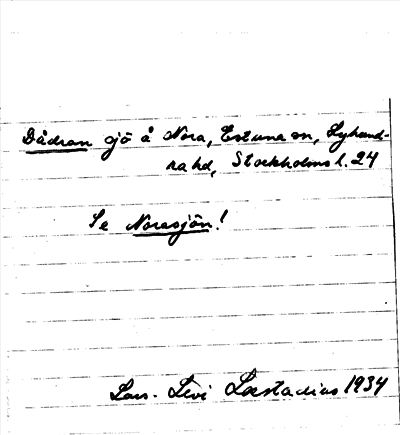 Dådran sjö å Nora, Estuna sn, Lyhund-
ra hd, Stockholms l. 24
Se Norasjön!
Lars-Levi Læstadius 1934